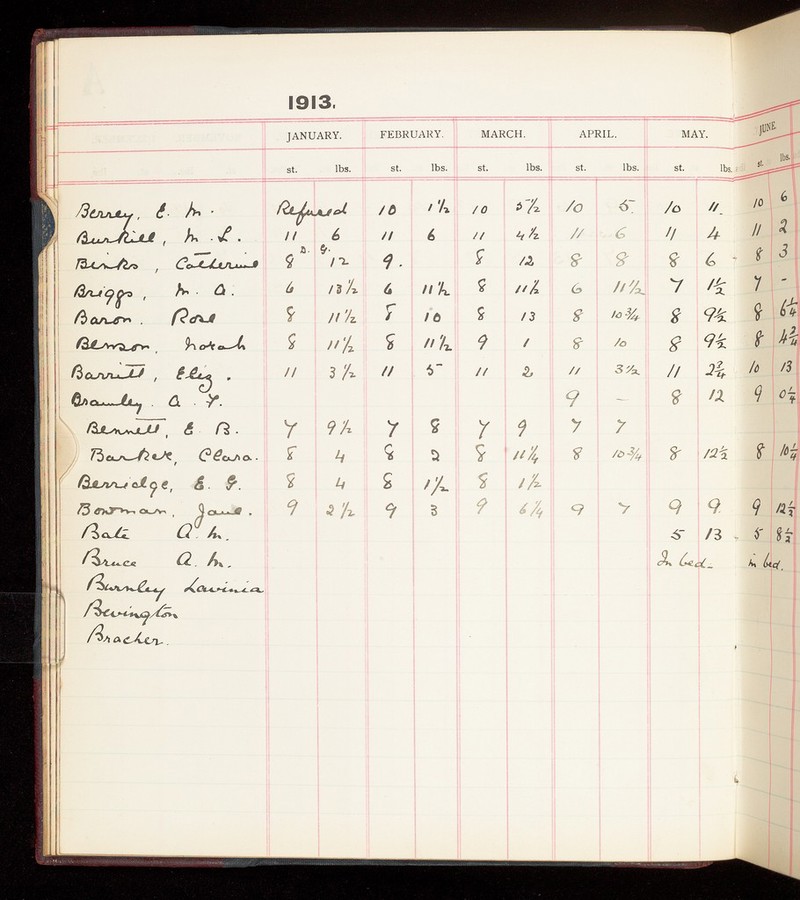 1913.
JANUARY. FEBRUARY. MARCH. APRIL. MAY. JUNE.
st. lbs. st. lbs. st. lbs. st. lbs. st. lbs. st. lbs.
Berrey, E. M. Refused 10 1½ 10 5½ 10 5. 10 11. 10 6
Burkill, M. L. 11 6 11 6 11 4½ 11 6 11 4 11 2
D. G.
Binks, Catherine 8 12 9. 8 12 8 8 8 6 8 3
Briggs, M. A. 6 13½ 6 11½ 8 11½ 6 11½ 7 1½ 7 -
Baron. Rose 8 11½ 8 10 8 13 8 10¾ 8 9½ 8 6¼
Benson, Norah 8 11½ 8 11½ 9 1 8 10 8 9½ 8 4¾
Barritt, Eliz. 11 3½ 11 5 11 2 11 3½ 11 2¾ 10 13
Bramley. A. F. 9 - 8 12 9 0¼
Bennett, E B. 7 9½ 7 8 7 9 7 7
Barker, Clara. 8 4 8 2 8 11¼ 8 10¾ 8 12½ 8 10¼
Berridge, E. G. 8 4 8 1½ 8 1½
Bowman, Jane. 9 2½ 9 3 9 6¼ 9 7 9 9. 9 12½
Bate A. M. 5 13 5 8½
Bruce A. M. In bed- in bed.
Burnley Lavinia
Bevington
Bracher.